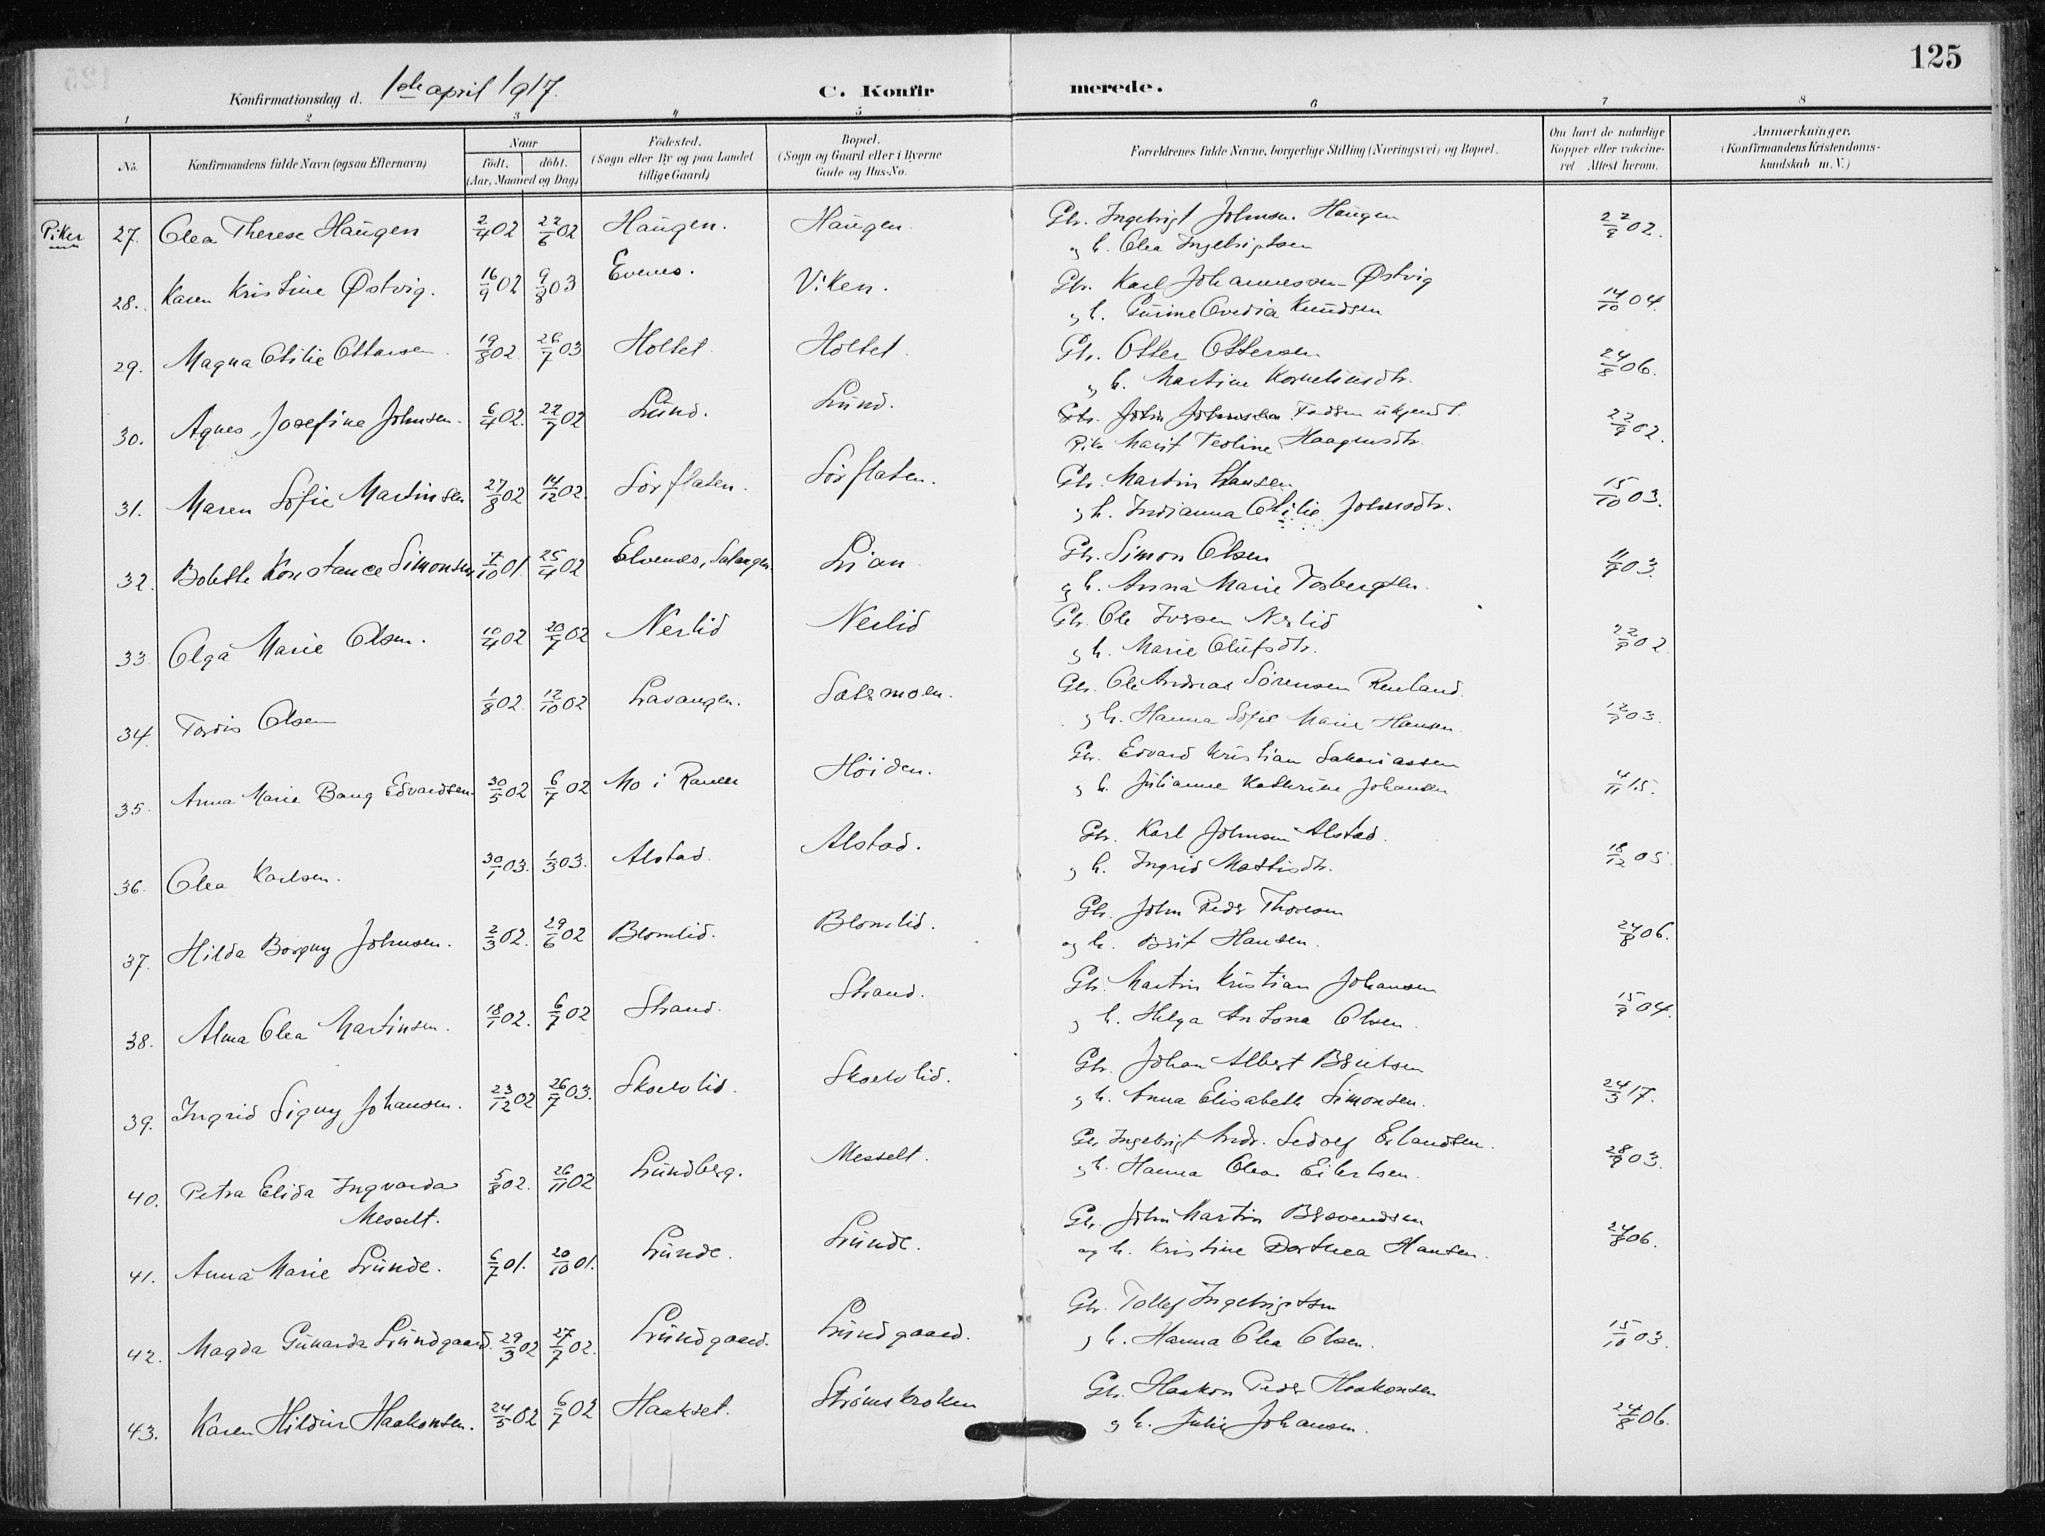 125
Konfirmationsdag d. 1ste april 1917. C. Konfirmerede.
1 2 3 4 5 6 7 8
No. Konfirmandens fulde Navn (ogsaa Efternavn) Naar født. døbt. (Aar, Maaned og Dag) Fødested. (Sogn eller By og paa Landet tillige Gaard) Bopæl. (Sogn og Gaard eller i Byerne Gade og Hus-No. Forældrenes fulde Navne, borgerlige Stilling (Næringsvei) og Bopæl. Om havt de naturlige Kopper eller vakcineret Attest herom. Anmærkninger. (Konfirmandens Kristendomskundskab m. V.)
Piker 27. Olea Therese Haugen 2/4 02 22/6 02 Haugen. Haugen. Gbr. Ingebrigt Johnsen Haugen 22/9 02.
og h. Olea Ingebrigtsen
28. Karen Kristine Østvig. 16/9 02 9/8 03 Evenes. Viken. Gbr. Karl Johannessen Østvig 14/10 04.
og h. Gurine Ovedia Knudsen
29. Magna Otilie Ottersen 19/8 02. 26/7 03 Holtet. Holtet. Gbr. Otter Ottersen 24/8 06.
og h. Martine Korneliusdtr.
30. Agnes Josefine Johnsen. 6/4 02. 22/7 02 Lund. Lund. Gbr. John Johnsen Fadern ukjendt. 22/9 02.
Pike Marit Perline Haagensdtr.
31. Maren Sofie Martinsen 27/8 02 14/12 02. Sørflaten. Sørflaten. Gbr. Martin Hansen 15/10 03.
og h. Indianna Otilie Johnsdtr.
32. Bolette Konstance Simonsen 7/10 01. 25/4 02 Elvenes, Salangen Lian Gbr. Simon Olsen 11/9 03.
og h. Anna Marie Torbergsen.
33. Olga Marie Olsen. 10/4 02 20/7 02 Nerlid Nerlid Gbr. Ole Iversen Nerlid 22/9 02
og h. Marie Olufsdtr.
34. Tordis Olsen 1/8 02. 12/10 02 Lavangen. Sætermoen. Gbr. Ole Andreas Sørensen Renland. 12/9 03.
og h. Hanna Sofie Marie Hansen.
35. Anna Marie Bang Edvardsen. 30/5 02 6/7 02 Mo i Ranen Høiden. Gbr. Edvard Kristian Sakariassen 4/11 15.
og h. Julianne Kathrine Johansen
36. Olea Karlsen. 30/1 03. 1/3 03. Alstad. Alstad. Gbr. Karl Johnsen Alstad. 18/12 05
og h. Ingrid Mattisdtr.
37. Hilda Borgny Johnsen. 2/3 02. 29/6 02 Blomlid. Blomlid. Gbr. John Peder Thoresen 24/8 06.
og h. Berit Hansen.
38. Alma Olea Martinsen. 18/1 02. 6/7 02 Strand. Strand. Gbr. Martin Kristian Johansen 15/9 04.
og h. Helga Antona Olsen.
39. Ingrid Signy Johansen. 23/12 02 26/7 03. Skoelvlid. Skoelvlid. Gbr. Johan Albert Berntsen 24/3 17.
og h. Anna Elisabeth Simonsen.
40. Petra Elida Ingvarda 5/8 02. 26/11 02 Lundberg. Messelt. Gbr. Ingebrigt Andr. Sedolf Erlandsen. 28/9 03.
Messelt. og h. Hanna Olea Eilertsen.
41. Anna Marie Lunde. 6/7 01. 20/10 01. Lunde. Lunde. Gbr. John Martin Brevendsen 24/8 06.
og h. Kristine Dorthea Hansen.
42. Magda Gunarda Lundgaard. 29/3 02 27/7 02. Lundgaard. Lundgaard. Gbr. Tollef Ingebrigtsen 15/10 03.
og h. Hanna Olea Olsen.
43. Karen Hildur Haakonsen. 24/5 02 6/7 02 Haakset. Strømskroken Gbr. Haakon Peder Haakonsen 24/8 06.
og h. Julie Johansen.